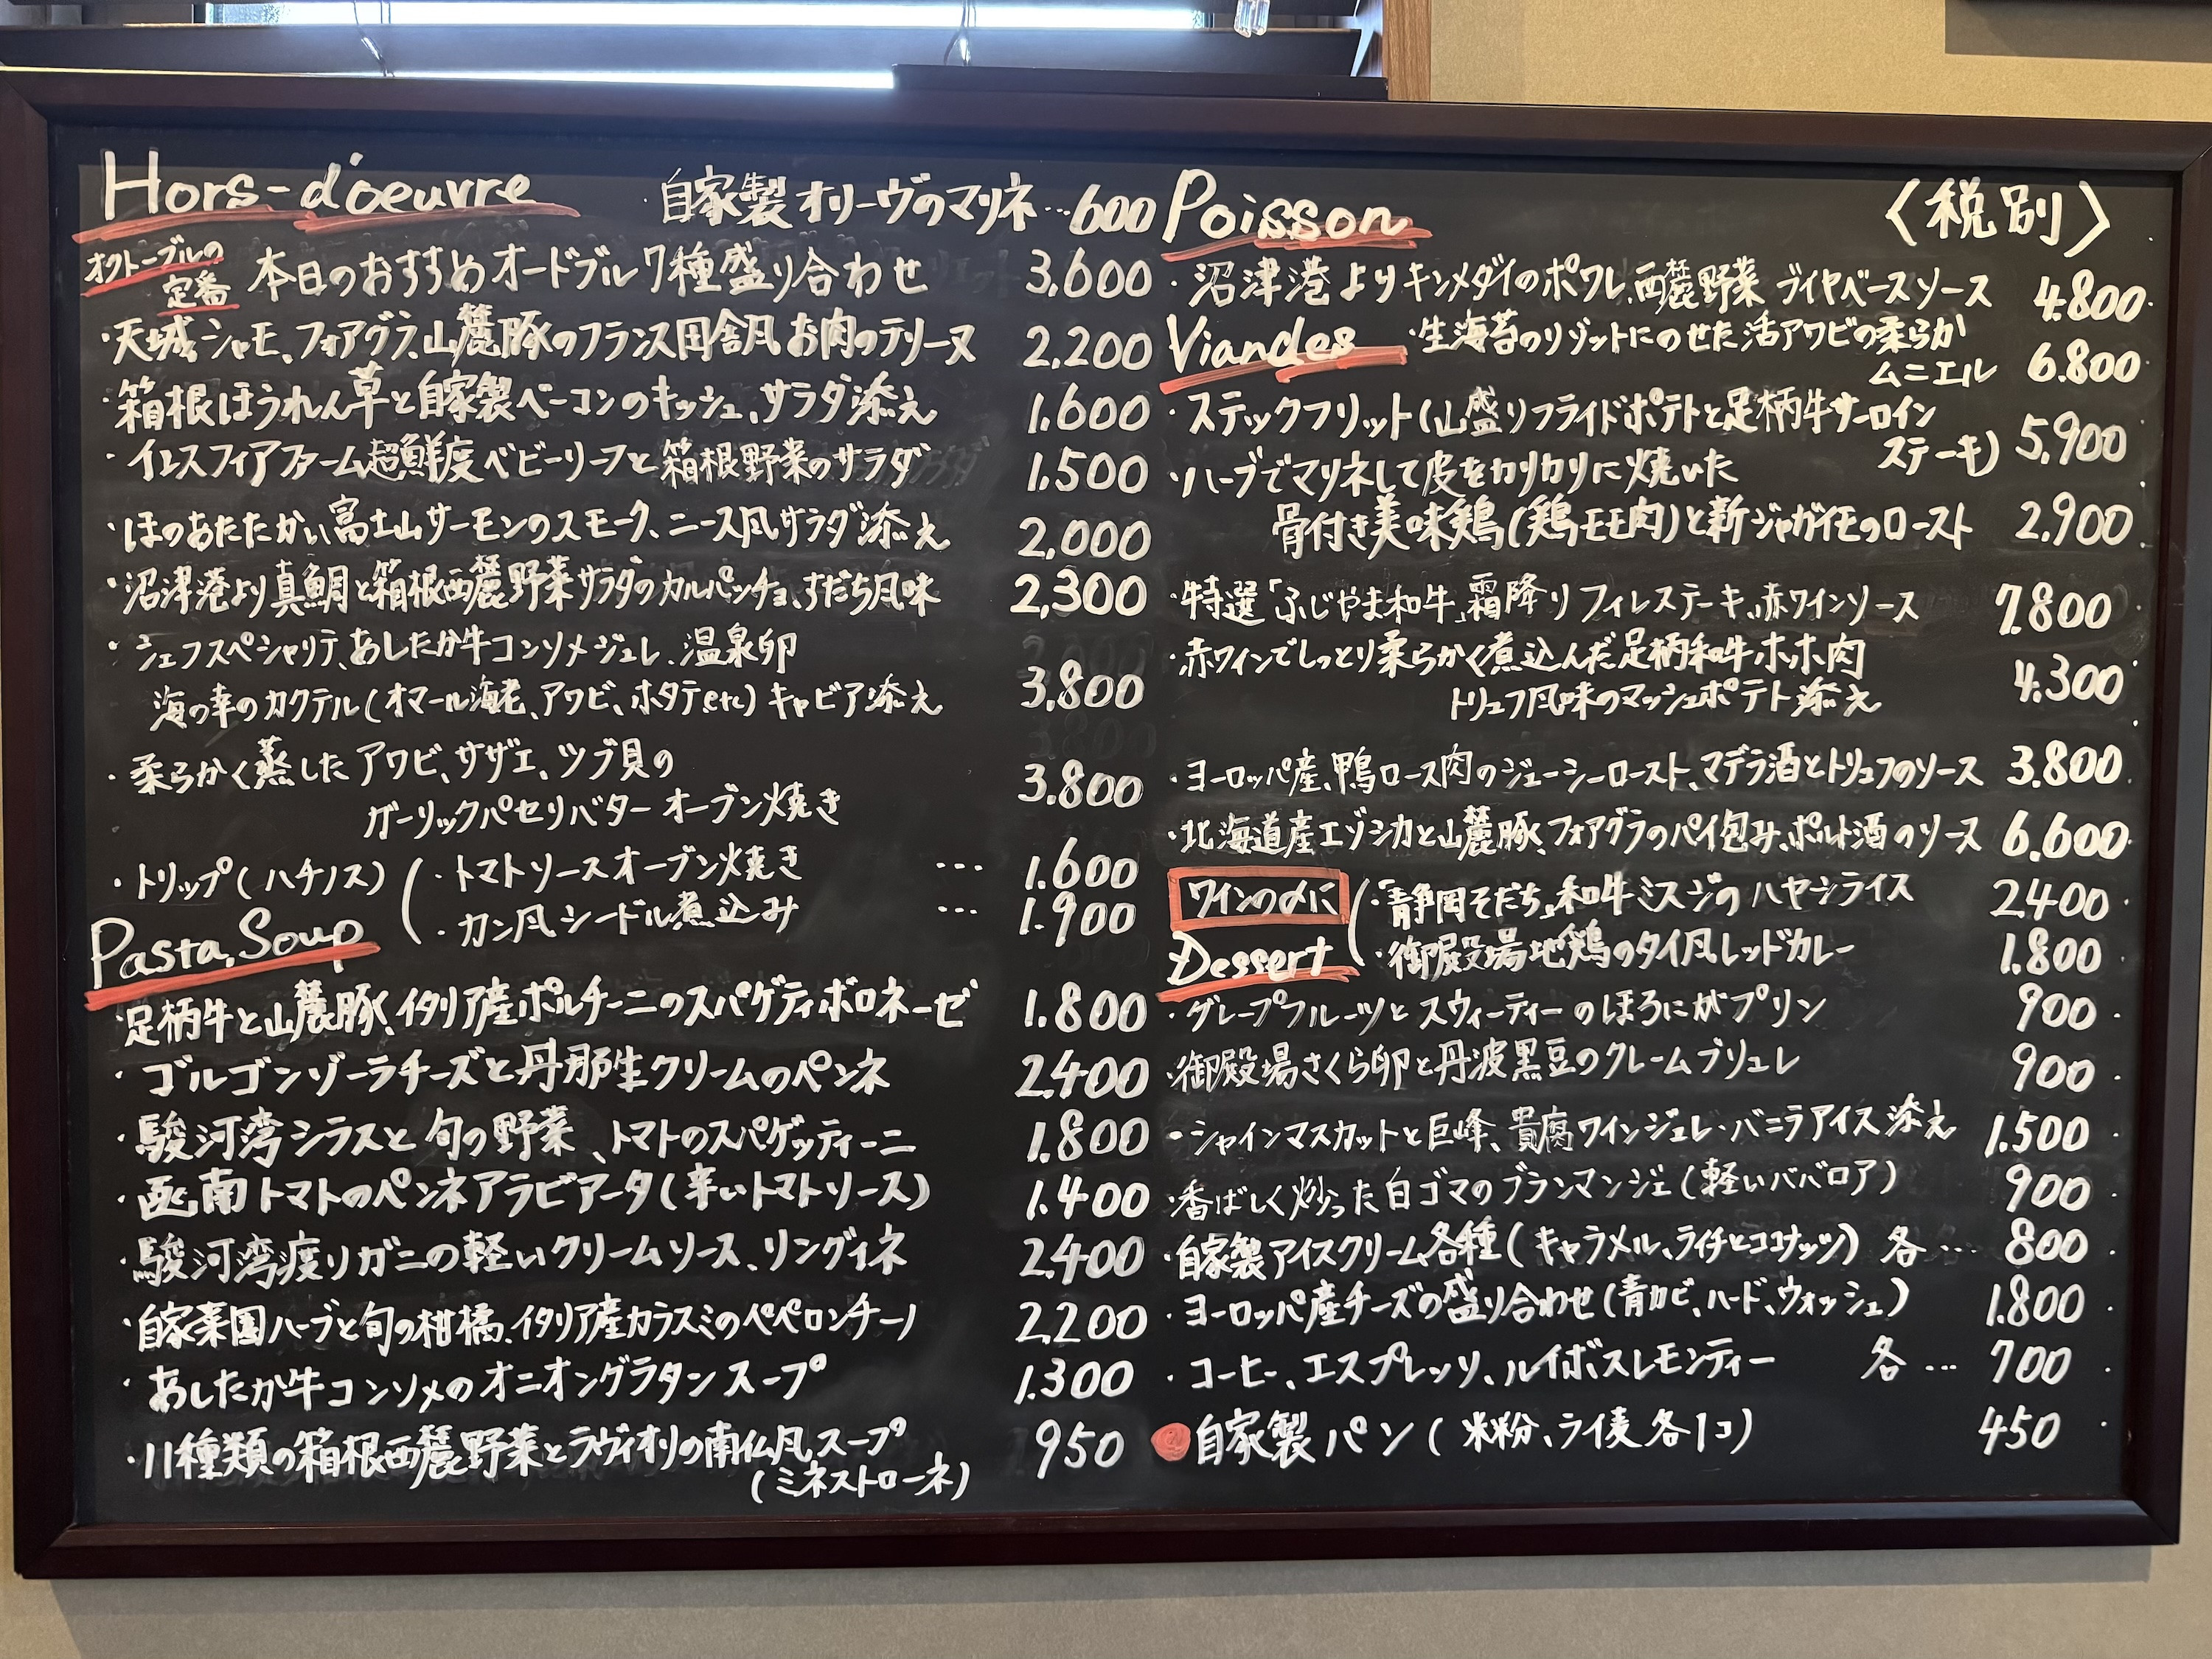 Hors-d'oeuvre
自家製オリーヴのマリネ…600
オクトーブルの
定番
本日のおすすめオードブル7種盛り合わせ 3,600
・天城シャモ、フォアグラ、山麓豚のフランス田舎風お肉のテリーヌ 2,200
・箱根ほうれん草と自家製ベーコンのキッシュ、サラダ添え 1,600
・イレスフィアファーム超鮮度ベビーリーフと箱根野菜のサラダ 1,500
・ほのあたたかい富士山サーモンのスモーク、ニース風サラダ添え 2,000
・沼津港より真鯛と箱根西麓野菜サラダのカルパッチョ、すだち風味 2,300
・シェフスペシャリテ、あしたか牛コンソメジュレ、温泉卵
海の幸のカクテル(オマール海老、アワビ、ホタテetc)キャビア添え 3,800
・柔らかく蒸したアワビ、サザエ、ツブ貝の
ガーリックパセリバターオーブン焼き 3.800
・トリップ(ハチノス)
・トマトソースオーブン焼き … 1.600
・カン風シードル煮込み … 1.900
Pasta.Soup
・足柄牛と山麓豚、イタリア産ポルチーニのスパゲティボロネーゼ 1.800
・ゴルゴンゾーラチーズと丹那生クリームのペンネ 2.400
・駿河湾シラスと旬の野菜、トマトのスパゲッティーニ 1.800
・西南トマトのペンネアラビアータ(辛いトマトソース) 1.400
・駿河湾渡りガニの軽いクリームソース、リングイネ 2.400
・自家菜園ハーブと旬の柑橘、イタリア産カラスミのペペロンチーノ 2.200
・あしたか牛コンソメのオニオングラタンスープ 1.300
・11種類の箱根西麓野菜とラヴィオリの南仏風スープ 950
(ミネストローネ)
Poisson
〈税別〉
・沼津港よりキンメダイのポワレ、西麓野菜 ブイヤベースソース 4.800
Viandes
・生海苔のリゾットにのせた活アワビの柔らか
ムニエル 6.800
・ステックフリット(山盛りフライドポテトと足柄牛サーロイン
ステーキ) 5,900
・ハーブでマリネして皮をカリカリに焼いた
骨付き美味鶏(鶏モモ肉)と新ジャガイモのロースト 2.900
・特選「ふじやま和牛」霜降りフィレステーキ、赤ワインソース 7.800
・赤ワインでしっとり柔らかく煮込んだ足柄和牛ホホ肉
トリュフ風味のマッシュポテト添え 4.300
・ヨーロッパ産、鴨ロース肉のジューシーロースト、マデラ酒とトリュフのソース 3.800
・北海道産エゾシカと山麓豚、フォアグラのパイ包み、ポルト酒のソース 6.600
ワインの〆に
・「静岡そだち」和牛ミスジのハヤシライス 2400
・御殿場地鶏のタイ風レッドカレー 1.800
Dessert
・グレープフルーツとスウィーティーのほろにがプリン 900
・御殿場さくら卵と丹波黒豆のクレームブリュレ 900
・シャインマスカットと巨峰、貴腐ワインジュレ・バニラアイス添え 1.500
・香ばしく炒った白ゴマのブランマンジェ(軽いババロア) 900
・自家製アイスクリーム各種(キャラメル、ライチとココナッツ) 各… 800
・ヨーロッパ産チーズの盛り合わせ(青カビ、ハード、ウォッシュ) 1.800
・コーヒー、エスプレッソ、ルイボスレモンティー 各… 700
自家製パン(米粉、ライ麦各1コ) 450